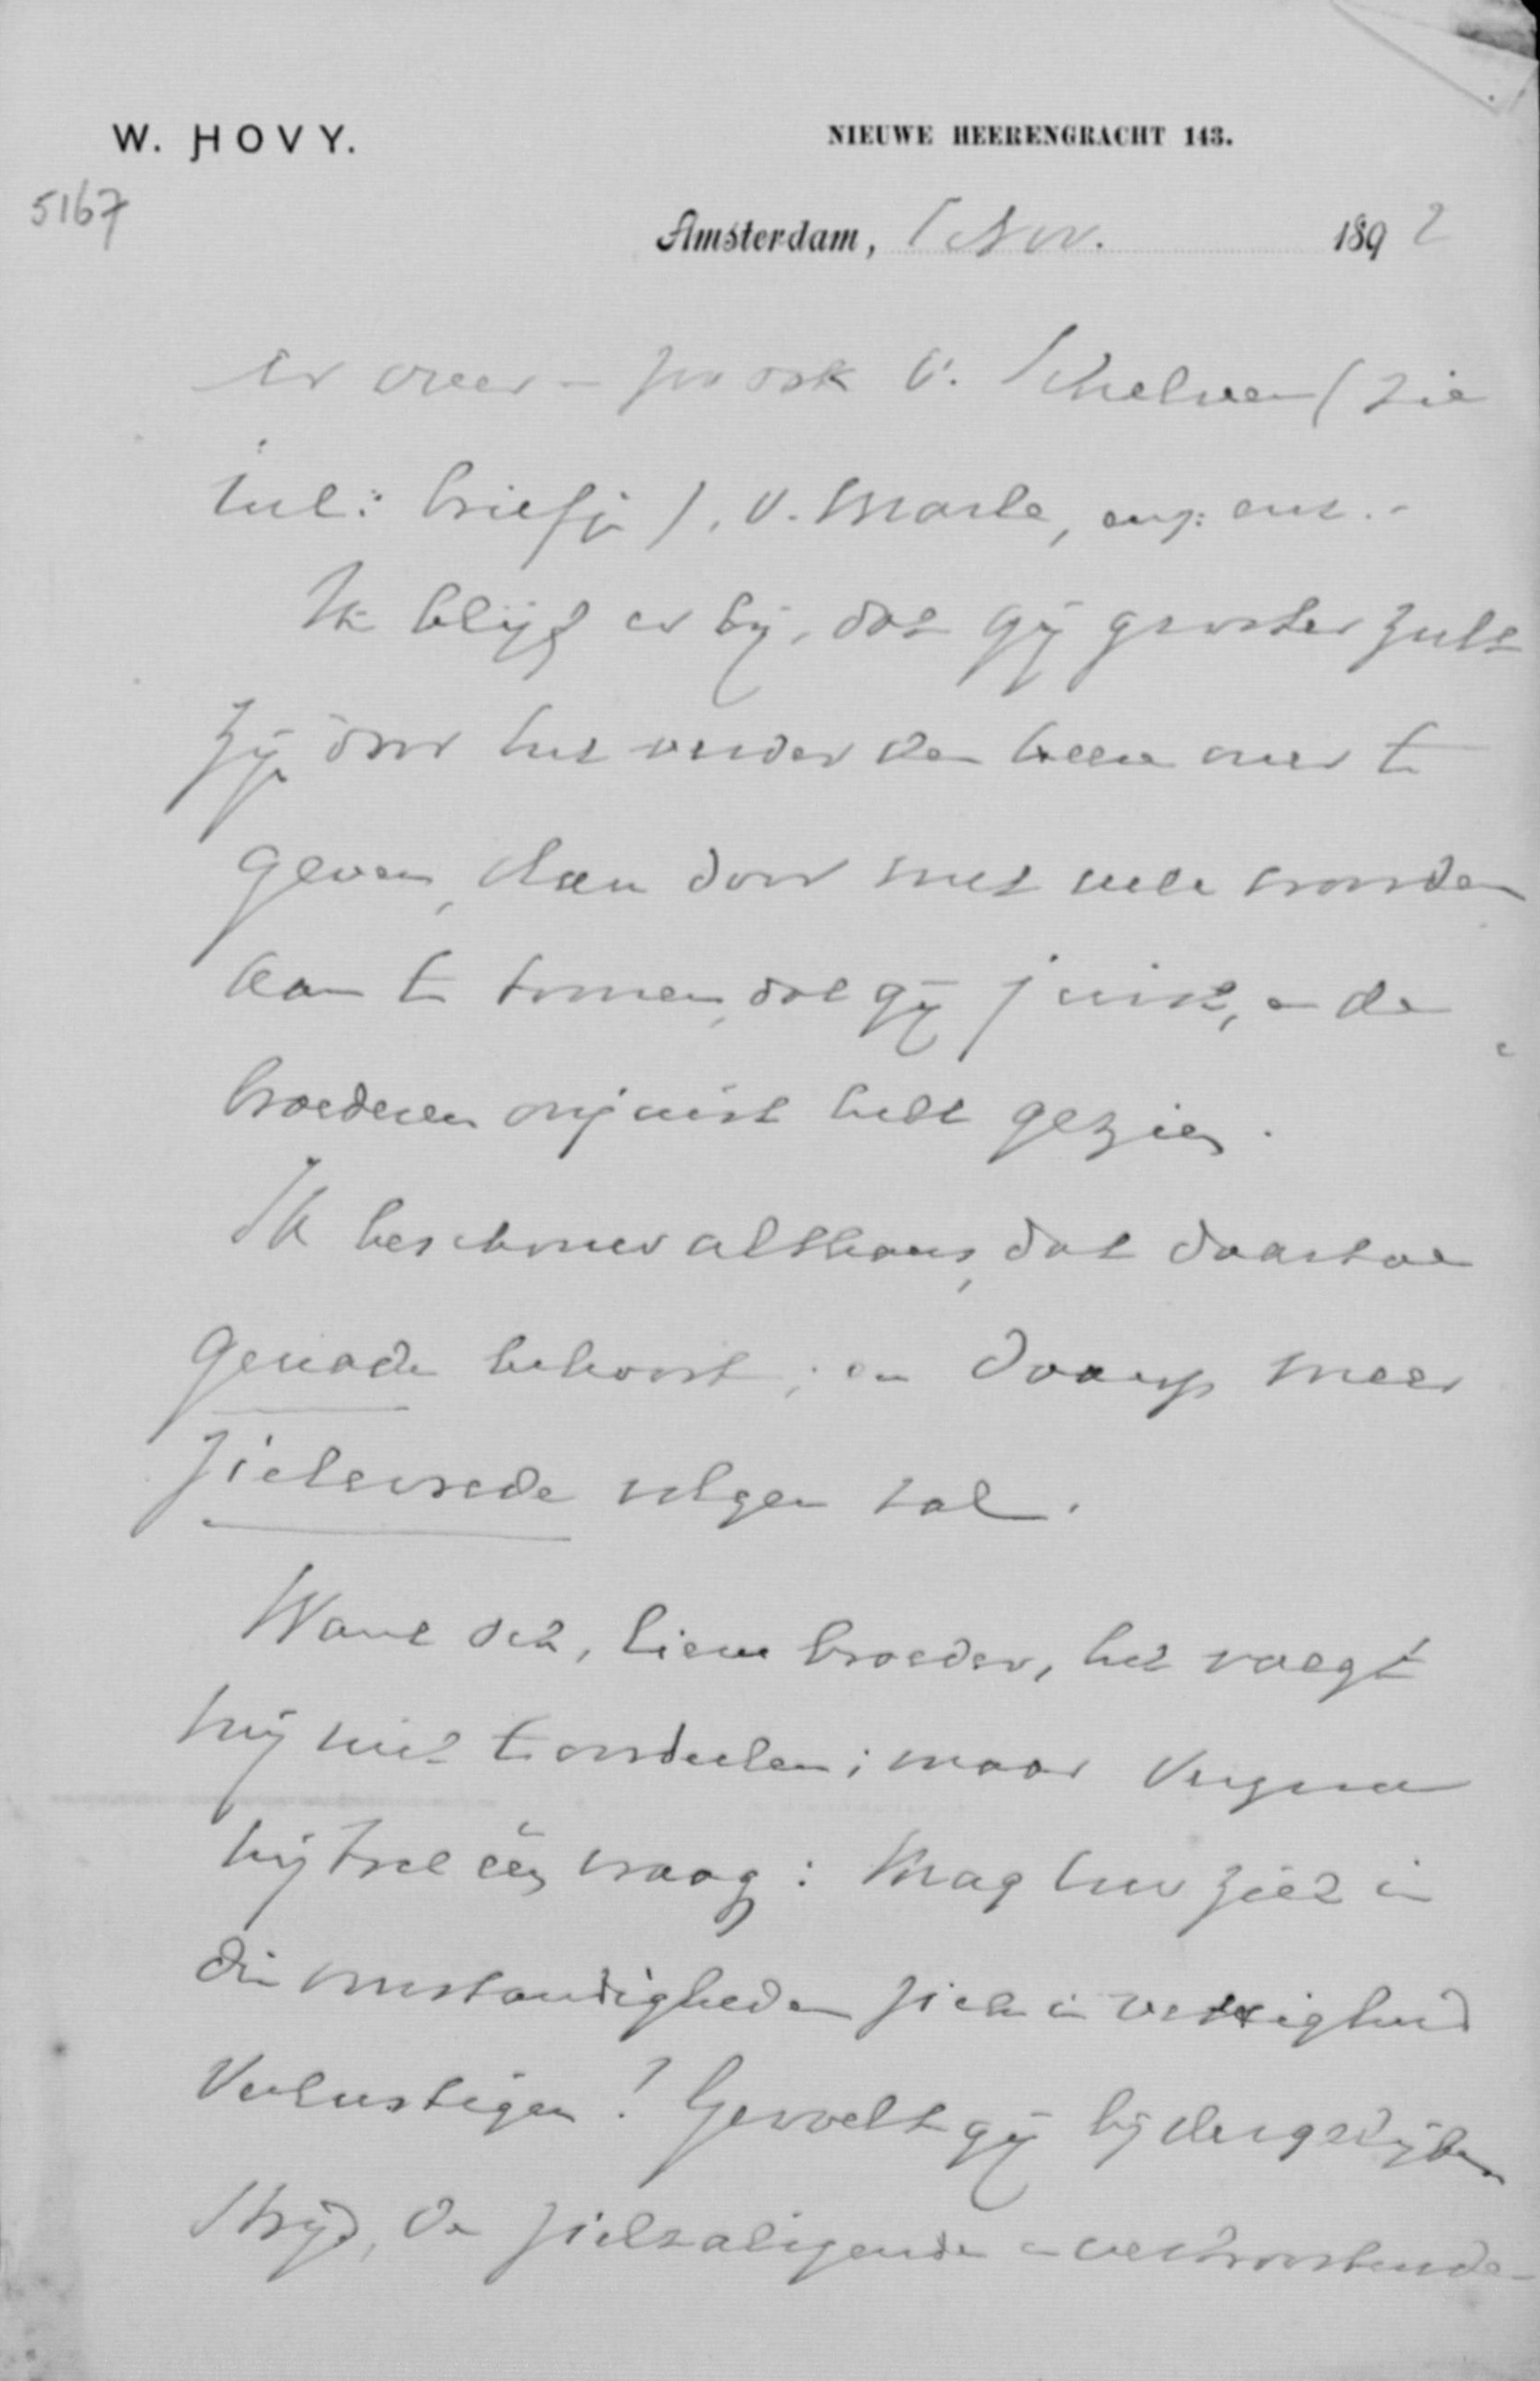 W. HOVY.
NIEUWE HEERENGRACHT 143.
5167
Amsterdam, 1 Nov. 1892
er over – zoo ook v. Schelven (zie
incl: briefje), v. Marle, enz: enz. –
Ik blijf er bij, dat gij grooter zult
zijn door het verder den heen over te
geven, dan door met vele woorden
aan te toonen, dat gij juist, en de
broederen onjuist hebt gezien.
Ik beschouw althans, dat daartoe
genade behoort; en daarop meer
zielevrede volgen zal.
Want och, lieve broeder, het voegt
mij niet te oordeelen; maar vergun
mij toch één vraag: Mag uw ziel in
die omstandigheden zich in vettigheid
verlustigen? Gevoelt gij bij dergelijken
strijd, de zielzaligende en vertroostende –